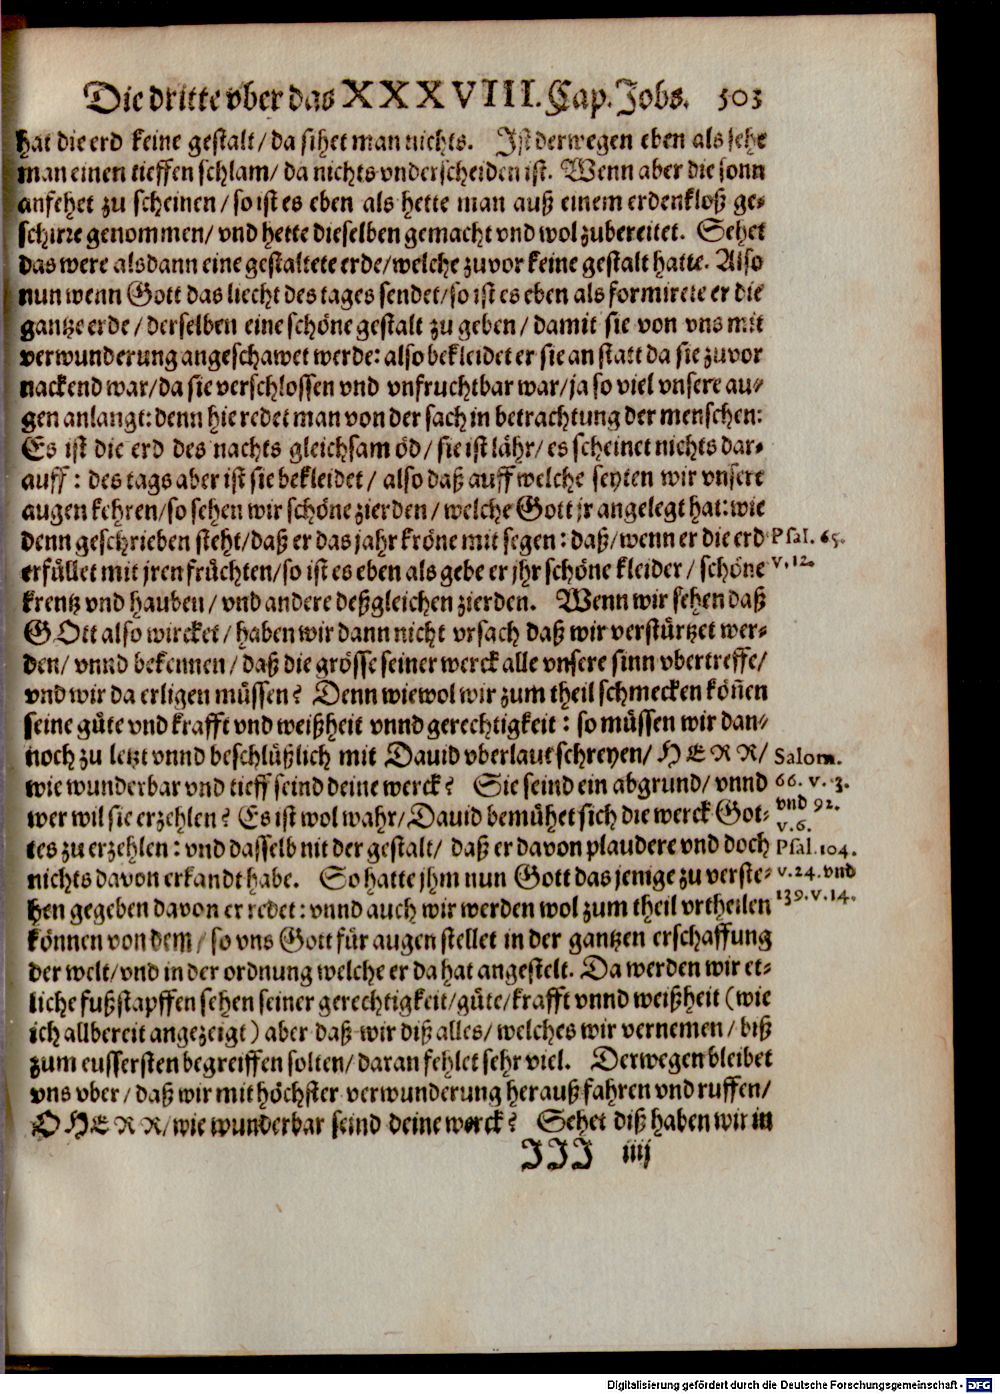 Die dritte vber das XXXVIII. Cap. Jobs. 503
hat die erd keine gestalt/ da sihet man nichts. Ist derwegen eben als sehe
man einen tieffen schlam/ da nichts vnderscheiden ist. Wenn aber die sonn
anfehet zu scheinen/ so ist es eben als hette man auß einem erdenkloß ge-
schirre genommen/ vnd hette dieselben gemacht vnd wol zubereitet. Sehet
das were alsdann eine gestaltete erde/ welche zuvor keine gestalt hatte. Also
nun wenn Gott das liecht des tages sendet/ so ist es eben als formirete er die
gantze erde/ derselben eine schöne gestalt zu geben/ damit sie von vns mit
verwunderung angeschawet werde: also bekleidet er sie an statt da sie zuvor
nackend war/ da sie verschlossen vnd vnfruchtbar war/ ja so viel vnsere au-
gen anlangt: denn hie redet man von der sach in betrachtung der menschen:
Es ist die erd des nachts gleichsam öd/ sie ist lähr/ es scheinet nichts dar-
auff: des tags aber ist sie bekleidet/ also daß auff welche seyten wir vnsere
augen kehren/ so sehen wir schöne zierden/ welche Gott jr angelegt hat: wie
denn geschrieben steht/ daß er das jahr kröne mit segen: daß/ wenn er die erd Psal. 65.
erfüllet mit jren früchten/ so ist es eben als gebe er jhr schöne kleider/ schöne v. 12.
krentz vnd hauben/ vnd andere deßgleichen zierden. Wenn wir sehen daß
GOtt also wircket/ haben wir dann nicht vrsach daß wir verstürtzet wer-
den/ vnnd bekennen/ daß die grösse seiner werck alle vnsere sinn vbertreffe/
vnd wir da erligen müssen? Denn wiewol wir zum theil schmecken köñen
seine güte vnd krafft vnd weißheit vnnd gerechtigkeit: so müssen wir dan-
noch zu letzt vnnd beschlüßlich mit Dauid vberlaut schreyen/ HERR/ Salom.
wie wunderbar vnd tieff seind deine werck? Sie seind ein abgrund/ vnnd 66. v. 3.
wer wil sie erzehlen? Es ist wol wahr/ Dauid bemühet sich die werck Got- vnd 92. v. 6.
tes zu erzehlen: vnd dasselb nit der gestalt/ daß er davon plaudere vnd doch Psal. 104.
nichts davon erkandt habe. So hatte jhm nun Gott das jenige zu verste- v. 24. vnd
hen gegeben davon er redet: vnnd auch wir werden wol zum theil vrtheilen 139. v. 14.
können von dem/ so vns Gott für augen stellet in der gantzen erschaffung
der welt/ vnd in der ordnung welche er da hat angestelt. Da werden wir et-
liche fußstapffen sehen seiner gerechtigkeit/ güte/ krafft vnnd weißheit (wie
ich allbereit angezeigt) aber daß wir diß alles/ welches wir vernemen/ biß
zum eussersten begreiffen solten/ daran fehlet sehr viel. Derwegen bleibet
vns vber/ daß wir mit höchster verwunderung herauß fahren vnd ruffen/
O HERR/ wie wunderbar seind deine werck? Sehet diß haben wir in
JJJ iiij
Digitalisierung gefördert durch die Deutsche Forschungsgemeinschaft - DFG